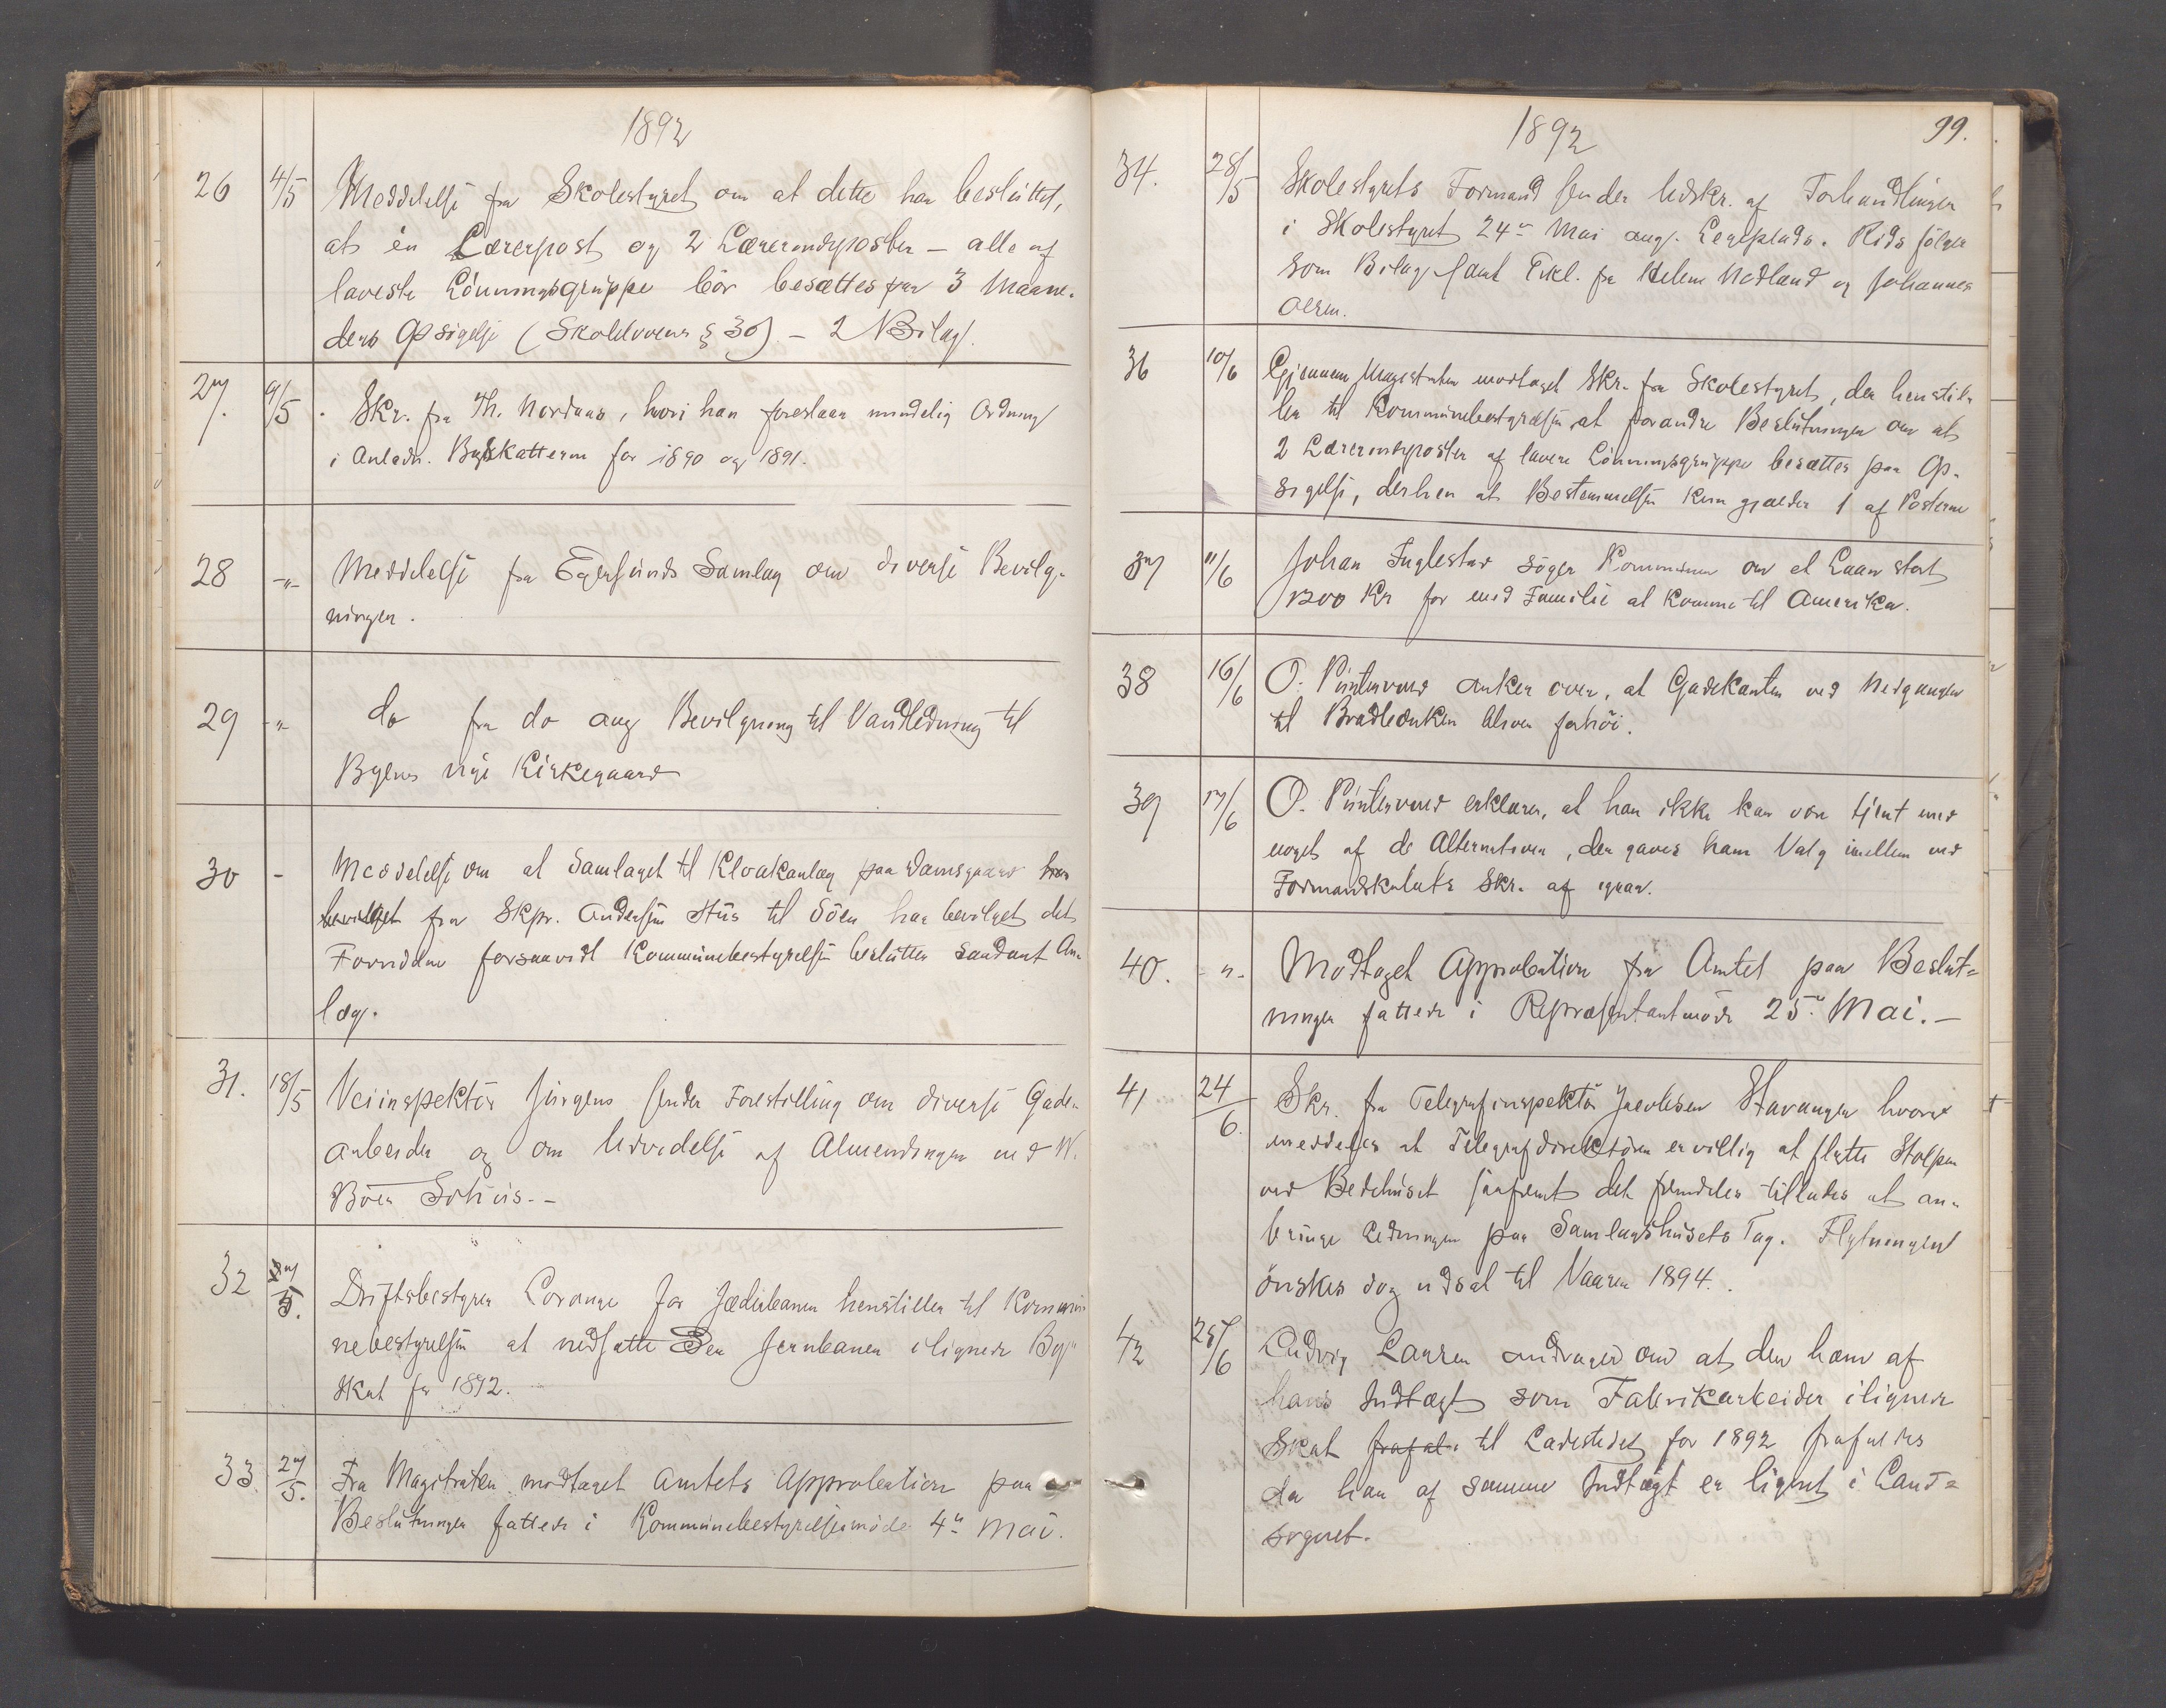 1892
26 4/5 Meddelelse fra Skolestyret om at dette har besluttet,
at én Lærerpost og 2 Lærerindeposter – alle af
laveste Lönningsgruppe bör besættes paa 3 Maane-
ders Opsigelse (Skolelovens § 30) – 2 Bilag.
27. 9/5 Skr. fra Th. Nordaas, hvori han foreslaar mindelig Ordning
i Anledn. Byskatterne for 1890 og 1891.
28 -"- Meddelelse fra Egersunds Samlag om diverse Bevilg-
ninger.
29 -"- do fra do ang Bevilgning til Vandledning til
Byens nye Kirkegaard
30 - Meddelelse om at Samlaget til Kloakanlæg paa Damsgaard har
bevilget fra Skpr. Andersens Hus til Söen har bevilget det
Fornödne forsaavidt Kommunebestyrelsen beslutter saadant An-
læg.
31. 18/5 Veiinspektör Jürgens sender Forestilling om diverse Gade-
arbeider og om Udvidelse af Almendingen ved W.
Böen Söhus. –
32 27/5. Driftsbestyrer Lorange for Jæderbanen henstiller til Kommu-
nebestyrelsen at nedsætte Den Jernbanen ilignede By-
skat for 1892.
33. 27/5. Fra Magistraten modtaget Amtets Approbation paa
Beslutninger fattede i Kommunebestyrelsesmöde 4de Mai.
1892
99.
34. 28/5 Skolestyrets Formand sender Udskr. af Forhandlinger
i Skolestyret 24de Mai ang. Legeplads. Rids fölger
som Bilag samt Erkl. fra Helene Nedland og Johannes
Olsen.
36 10/6 Gjennem Magistraten modtaget Skr. fra Skolestyret, der henstil-
ler til Kommunebestyrelsen at forandre Beslutningen om at
2 Lærerindeposter af lavere Lönningsgruppe besættes paa Op-
sigelse, derhen at Bestemmelsen kun gjælder 1 af Posterne
37 11/6 Johan Fuglestad söger Kommunen om et Laan stort
1200 Kr for med Familie at komme til Amerika.
38 16/6 O. Puntervold anker over, at Gadekanten ved Nedgangen
til Bradbænken bliver forhöi.
39 17/6 O. Puntervold erklærer, at han ikke kan være tjent med
noget af de Alternativer, der gaves ham Valg imellem ved
Formandskabets Skr. af igaar.
40. -"- Modtaget Approbation fra Amtet paa Beslut-
ninger fattede i Repræsentantmöde 25de Mai. –
41 24/6. Skr. fra Telegrafinspektör Jacobsen Stavanger hvori
meddeles at Telegrafdirektören er villig at flytte Stolpen
ved Bedehuset saafremt det fremdeles tillades at an-
bringe Ledningen paa Samlagshusets Tag. Flytningen
önskes dog udsat til Vaaren 1894.
42 25/6 Ludvig Larsen andrager om at den ham af
hans Indtægt som Fabrikarbeider ilignede
Skat til Ladestedet for 1892 frafaldes
da han af samme Indtægt er lignet i Land-
sognet.